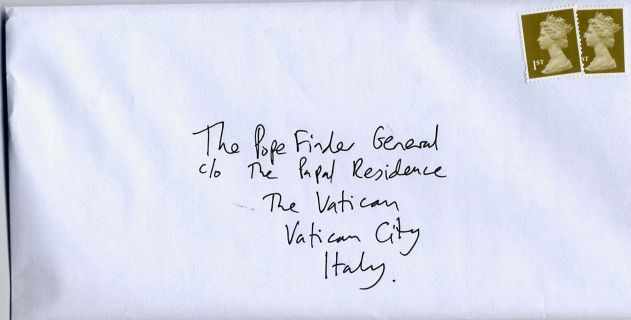 1ST
ST
The Pope Finder General
c/o The Papal Residence
The Vatican
Vatican City
Italy.